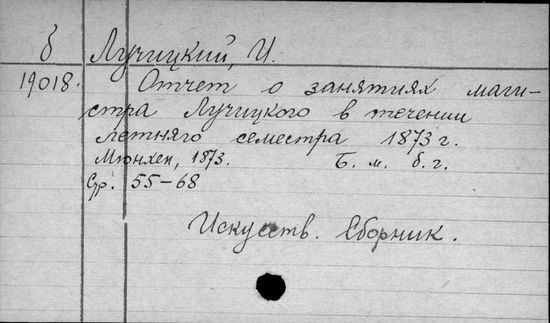 б Лучицкий, И.
19018. Отчет о занятиях маги-
стра Лучицкого в течении
летняго семестра 1873 г.
Мюнхен, 1873. Б. м. б. г.
Стр. 55-68
Искусств. Сборник.